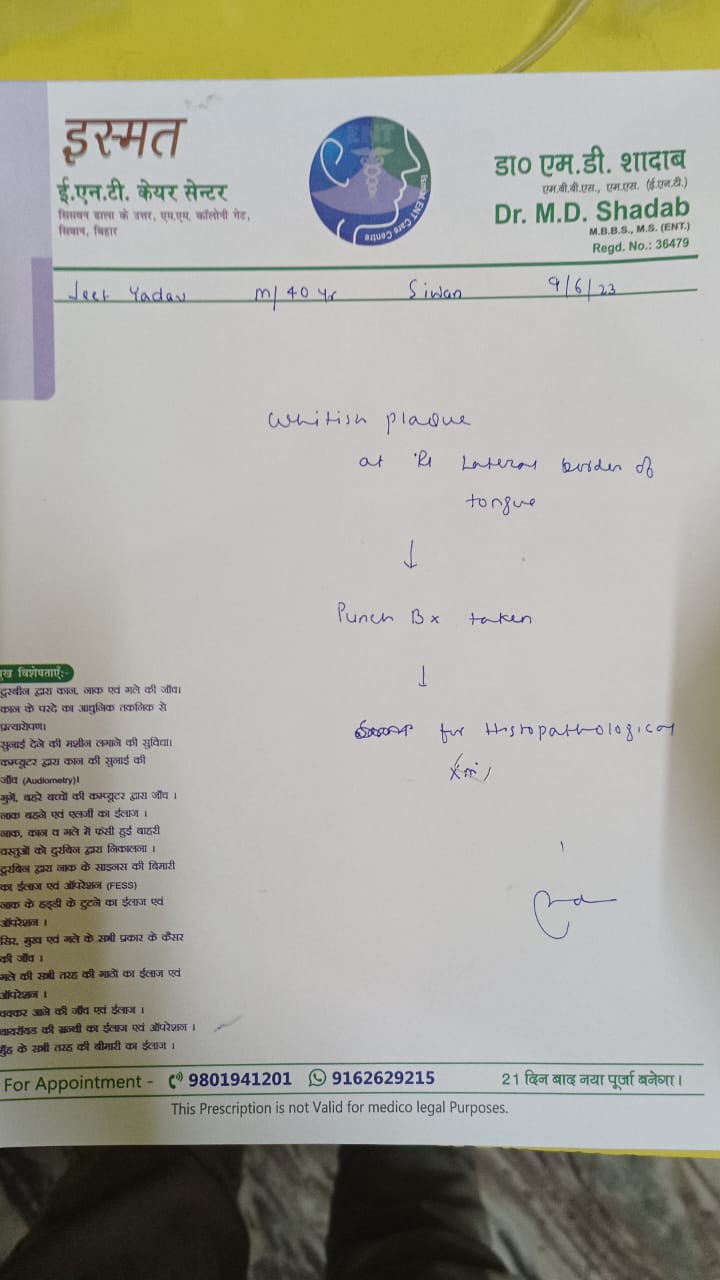 इस्मत
ई.एन.टी. केयर सेन्टर
सिसवन ढाला के उत्तर, एम.एम. कॉलोनी गेट,
सिवान, बिहार
Ismat ENT Care Centre
डा० एम.डी. शादाब
एम.बी.बी.एस., एम.एस. (ई.एन.टी.)
Dr. M.D. Shadab
M.B.B.S., M.S. (ENT.)
Regd. No.: 36479
Jeet Yadav M/40 yr Siwan 9/6/23
Whitish plaque
at Rt Lateral border of
tongue
↓
Punch Bx taken
↓
for Histopathological
मुख विशेषताएँ:-
दूरबीन द्वारा कान, नाक एवं गले की जाँच।
कान के परदे का आधुनिक तकनिक से
प्रत्यारोपण।
सुनाई देने की मशीन लगाने की सुविधा।
कम्प्यूटर द्वारा कान की सुनाई की
जाँच (Audiometry)।
गुगें, बहरे बच्चों की कम्प्यूटर द्वारा जाँच ।
नाक बहने एवं एलर्जी का ईलाज ।
नाक, कान व गले में फंसी हुई बाहरी
वस्तुओं को दुरबिन द्वारा निकालना ।
दुरबिन द्वारा नाक के साइनस की बिमारी
का ईलाज एवं ऑपरेशन (FESS)
नाक के हड्डी के टुटने का ईलाज एवं
ऑपरेशन ।
सिर, मुख एवं गले के सभी प्रकार के कैंसर
की जाँच ।
गले की सभी तरह की गाठों का ईलाज एवं
ऑपरेशन ।
चक्कर आने की जाँच एवं ईलाज ।
थायरॉयड की ग्रन्थी का ईलाज एवं ऑपरेशन ।
मुँह के सभी तरह की बीमारी का ईलाज ।
For Appointment - 9801941201 9162629215 21 दिन बाद नया पूर्जा बनेगा।
This Prescription is not Valid for medico legal Purposes.